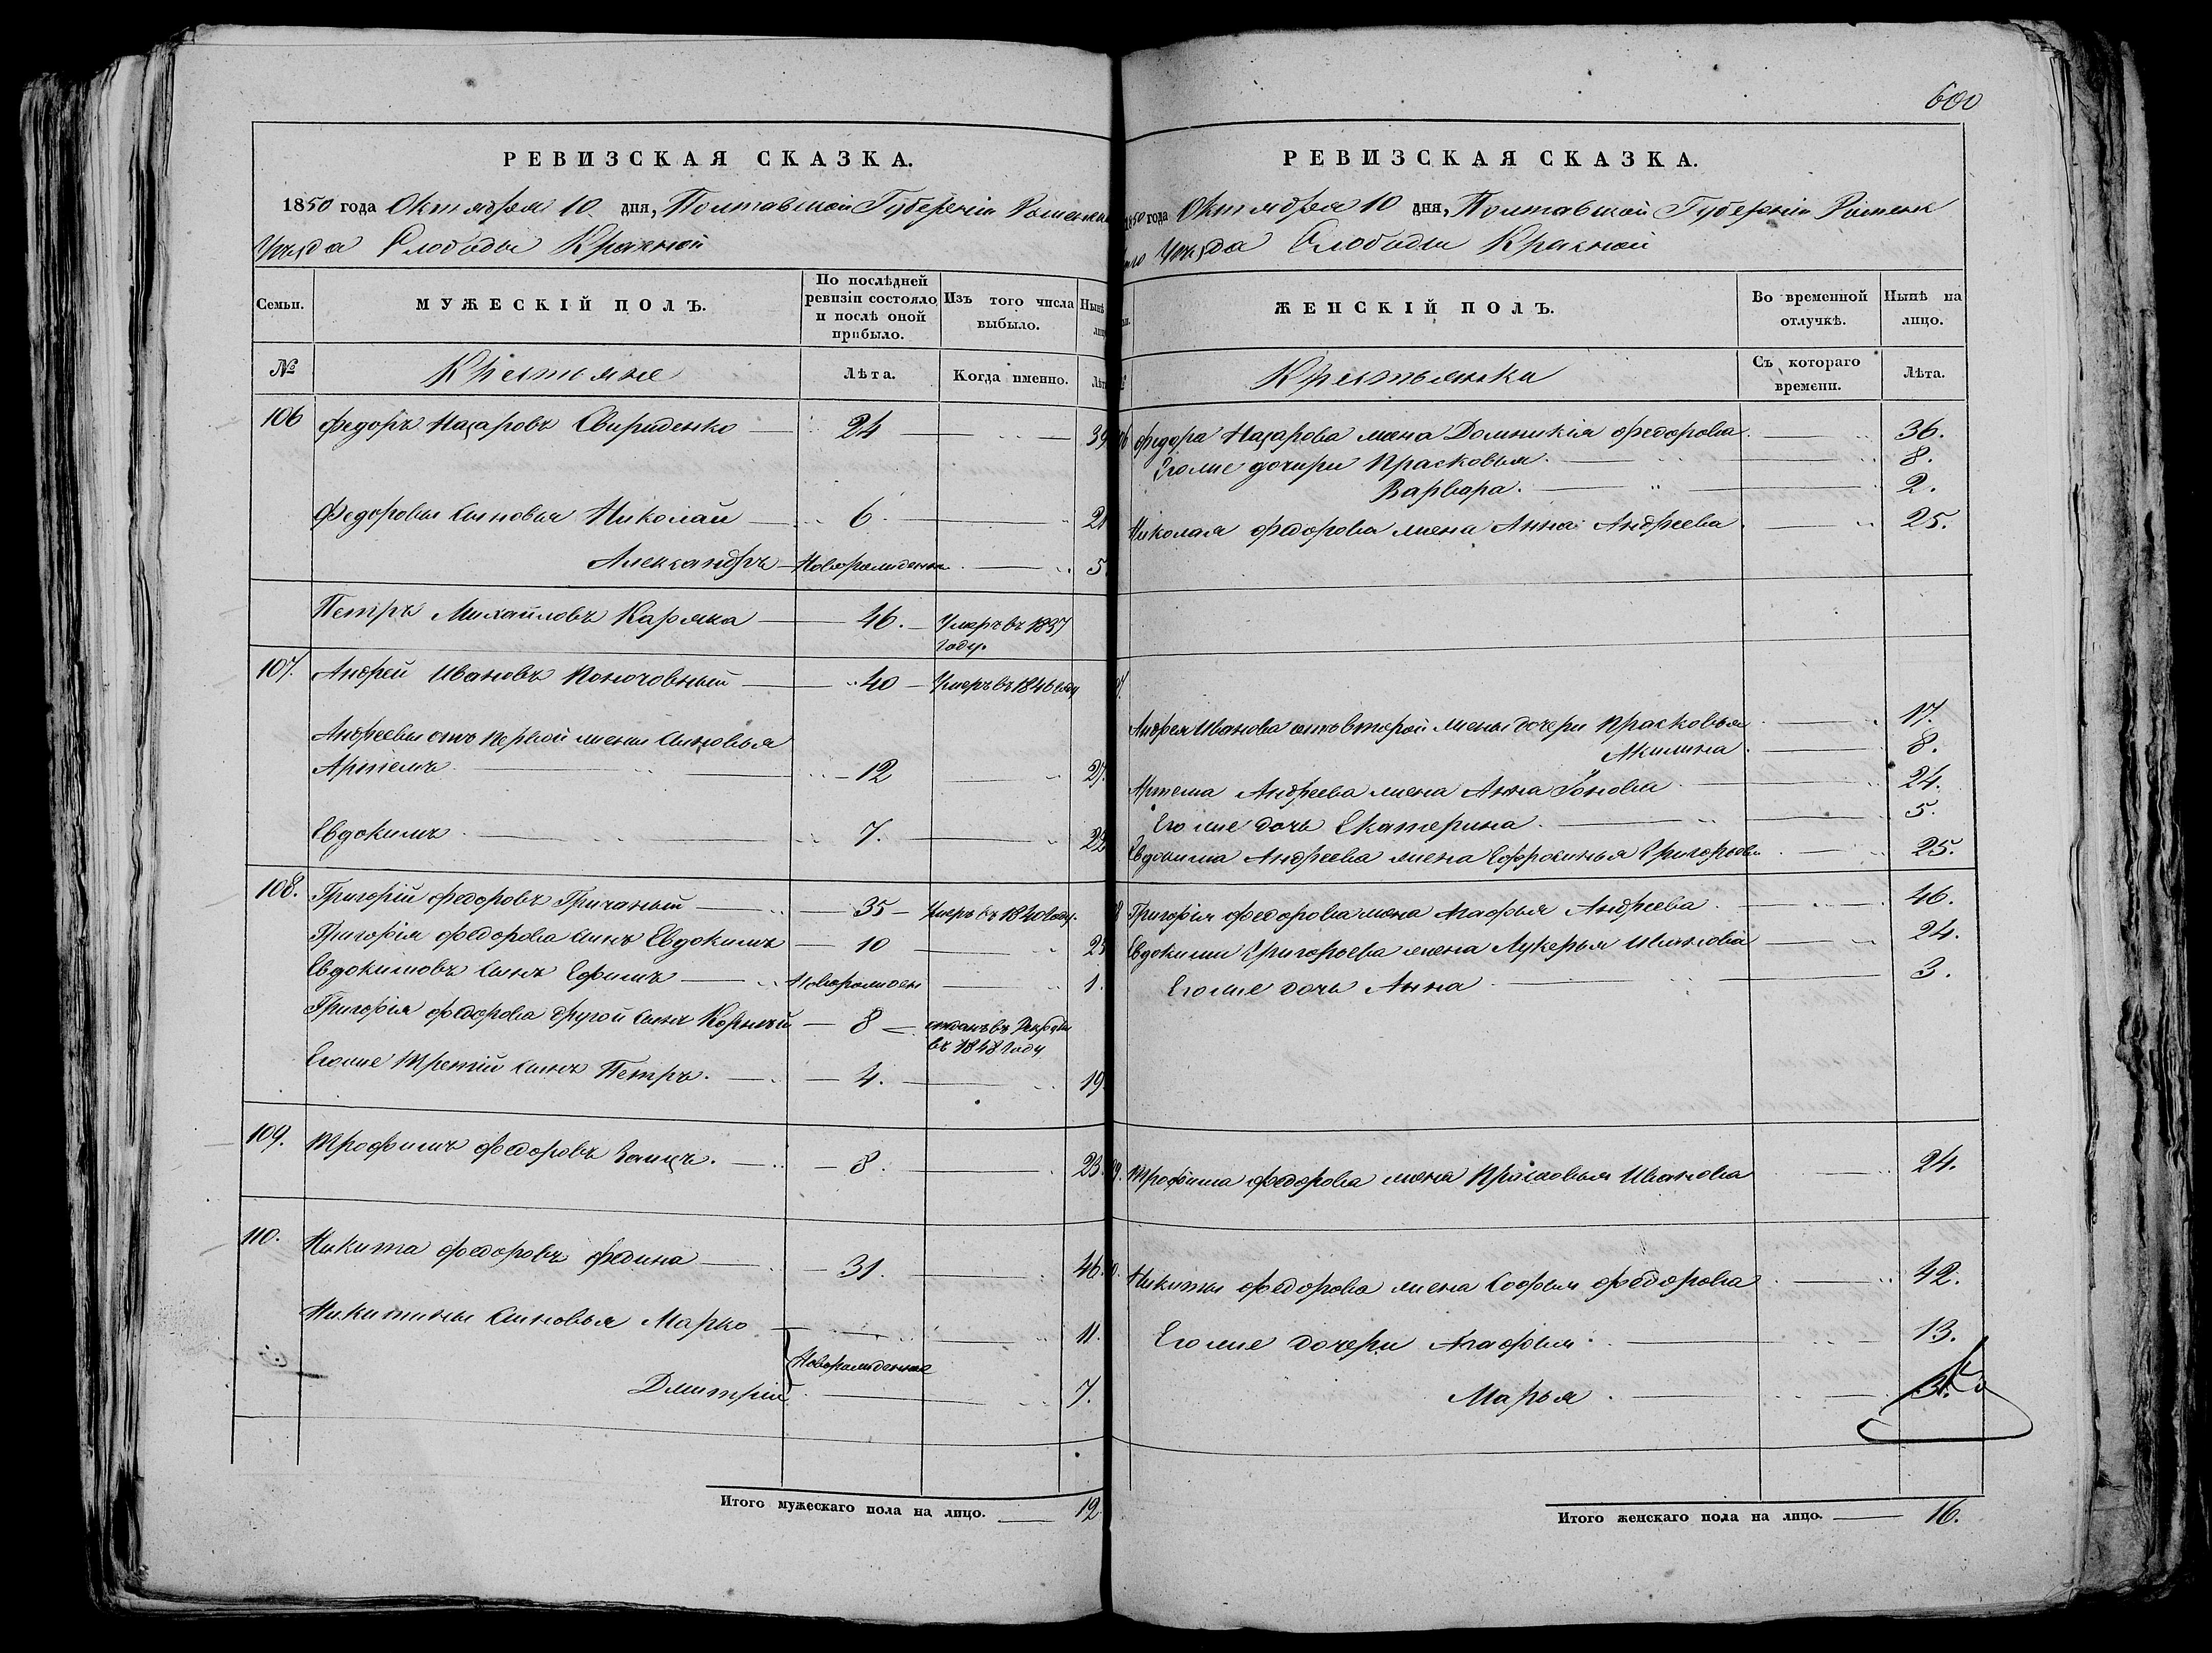 РЕВИЗСКАЯ СКАЗКА.
1850 года Октября 10 дня, Полтавской Губерніи Роменска
Уезда Слободы Красной
Семьи.
МУЖЕСКІЙ ПОЛЪ.
По послѣдней ревизіи состояло и послѣ оной прибыло.
Изъ того числа выбыло.
Нынѣ
лиц
№
Крестьяне
Лѣта.
Когда именно.
Лѣт
106 Федоръ Назаровъ Свириденко 24 39
Федоровы сыновья Николай 6. 21
Александръ Новорожденъ 5
Петръ Михайловъ Каряка 46. Умеръ въ 1837
году.
107. Андрей Ивановъ 40 Умеръ въ 1846 году
Андреевы отъ первой жены сыновья
Артемъ 12 27.
Евдокимъ 7. 22
108. Григорій Федоровъ Гричаный 35 Умеръ въ 1840 году.
Григорія Федорова сынъ Евдокимъ 10 25
Евдокимовъ сынъ Ефимъ Новорожден 1.
Григорія Федорова другой сынъ Корнѣй 8 отданъ въ Рекруты
въ 1848 году
Его же третій сынъ Петръ. 4. 19
109. Трофимъ Федоровъ Заицъ. 8. 23.
110. Никита Федоровъ Федина 31. 46.
Никитины сыновья Марко 11.
Новорожденные
Дмитрій 7.
Итого мужескаго пола на лицо. 12
600
РЕВИЗСКАЯ СКАЗКА.
1850 года Октября 10 дня, Полтавской Губерніи Роменск
аго Уезда Слободы Красной
ЖЕНСКІЙ ПОЛЪ.
Во временной отлучкѣ.
Нынѣ на лицо.
Крестьянки
Съ котораго времени.
Лѣта.
Федора Назарова жена Домникія Федорова 36.
Его же дочери Прасковья. 8.
Варвара. 2.
Николая Федорова жена Анна Андреева 25.
Андрея Иванова отъ второй жены дочери Прасковья 17.
Акилина 8.
Артема Андреева жена Анна Іонова 24.
Его же дочь Екатерина. 5.
Евдокима Андреева жена Ефросинья Григорьева 25.
Григорія Федорова жена Агафья Андреева 46.
Евдокима Григорьева жена Лукерья Иванова 24.
Его же дочь Анна 3.
Трофима Федорова жена Прасковья Иванова 24.
Никиты Федорова жена Софья Федорова 42.
Его же дочери Агафья 13.
Марья 3.
Итого женскаго пола на лицо. 16.